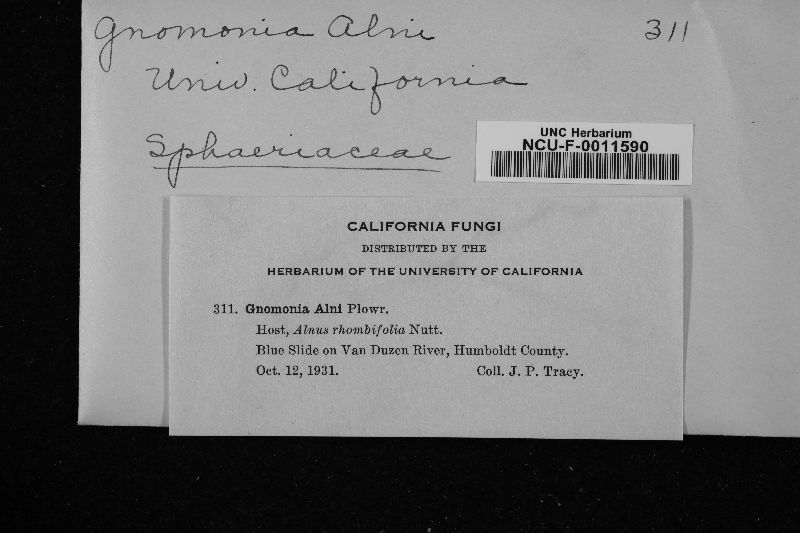 Gnomonia Alni 311
Univ. California
Sphaeriaceae
UNC Herbarium
NCU-F-0011590
CALIFORNIA FUNGI
DISTRIBUTED BY THE
HERBARIUM OF THE UNIVERSITY OF CALIFORNIA
311. Gnomonia Alni Plowr.
Host, Alnus rhombifolia Nutt.
Blue Slide on Van Duzen River, Humboldt County.
Oct. 12, 1931. Coll. J. P. Tracy.